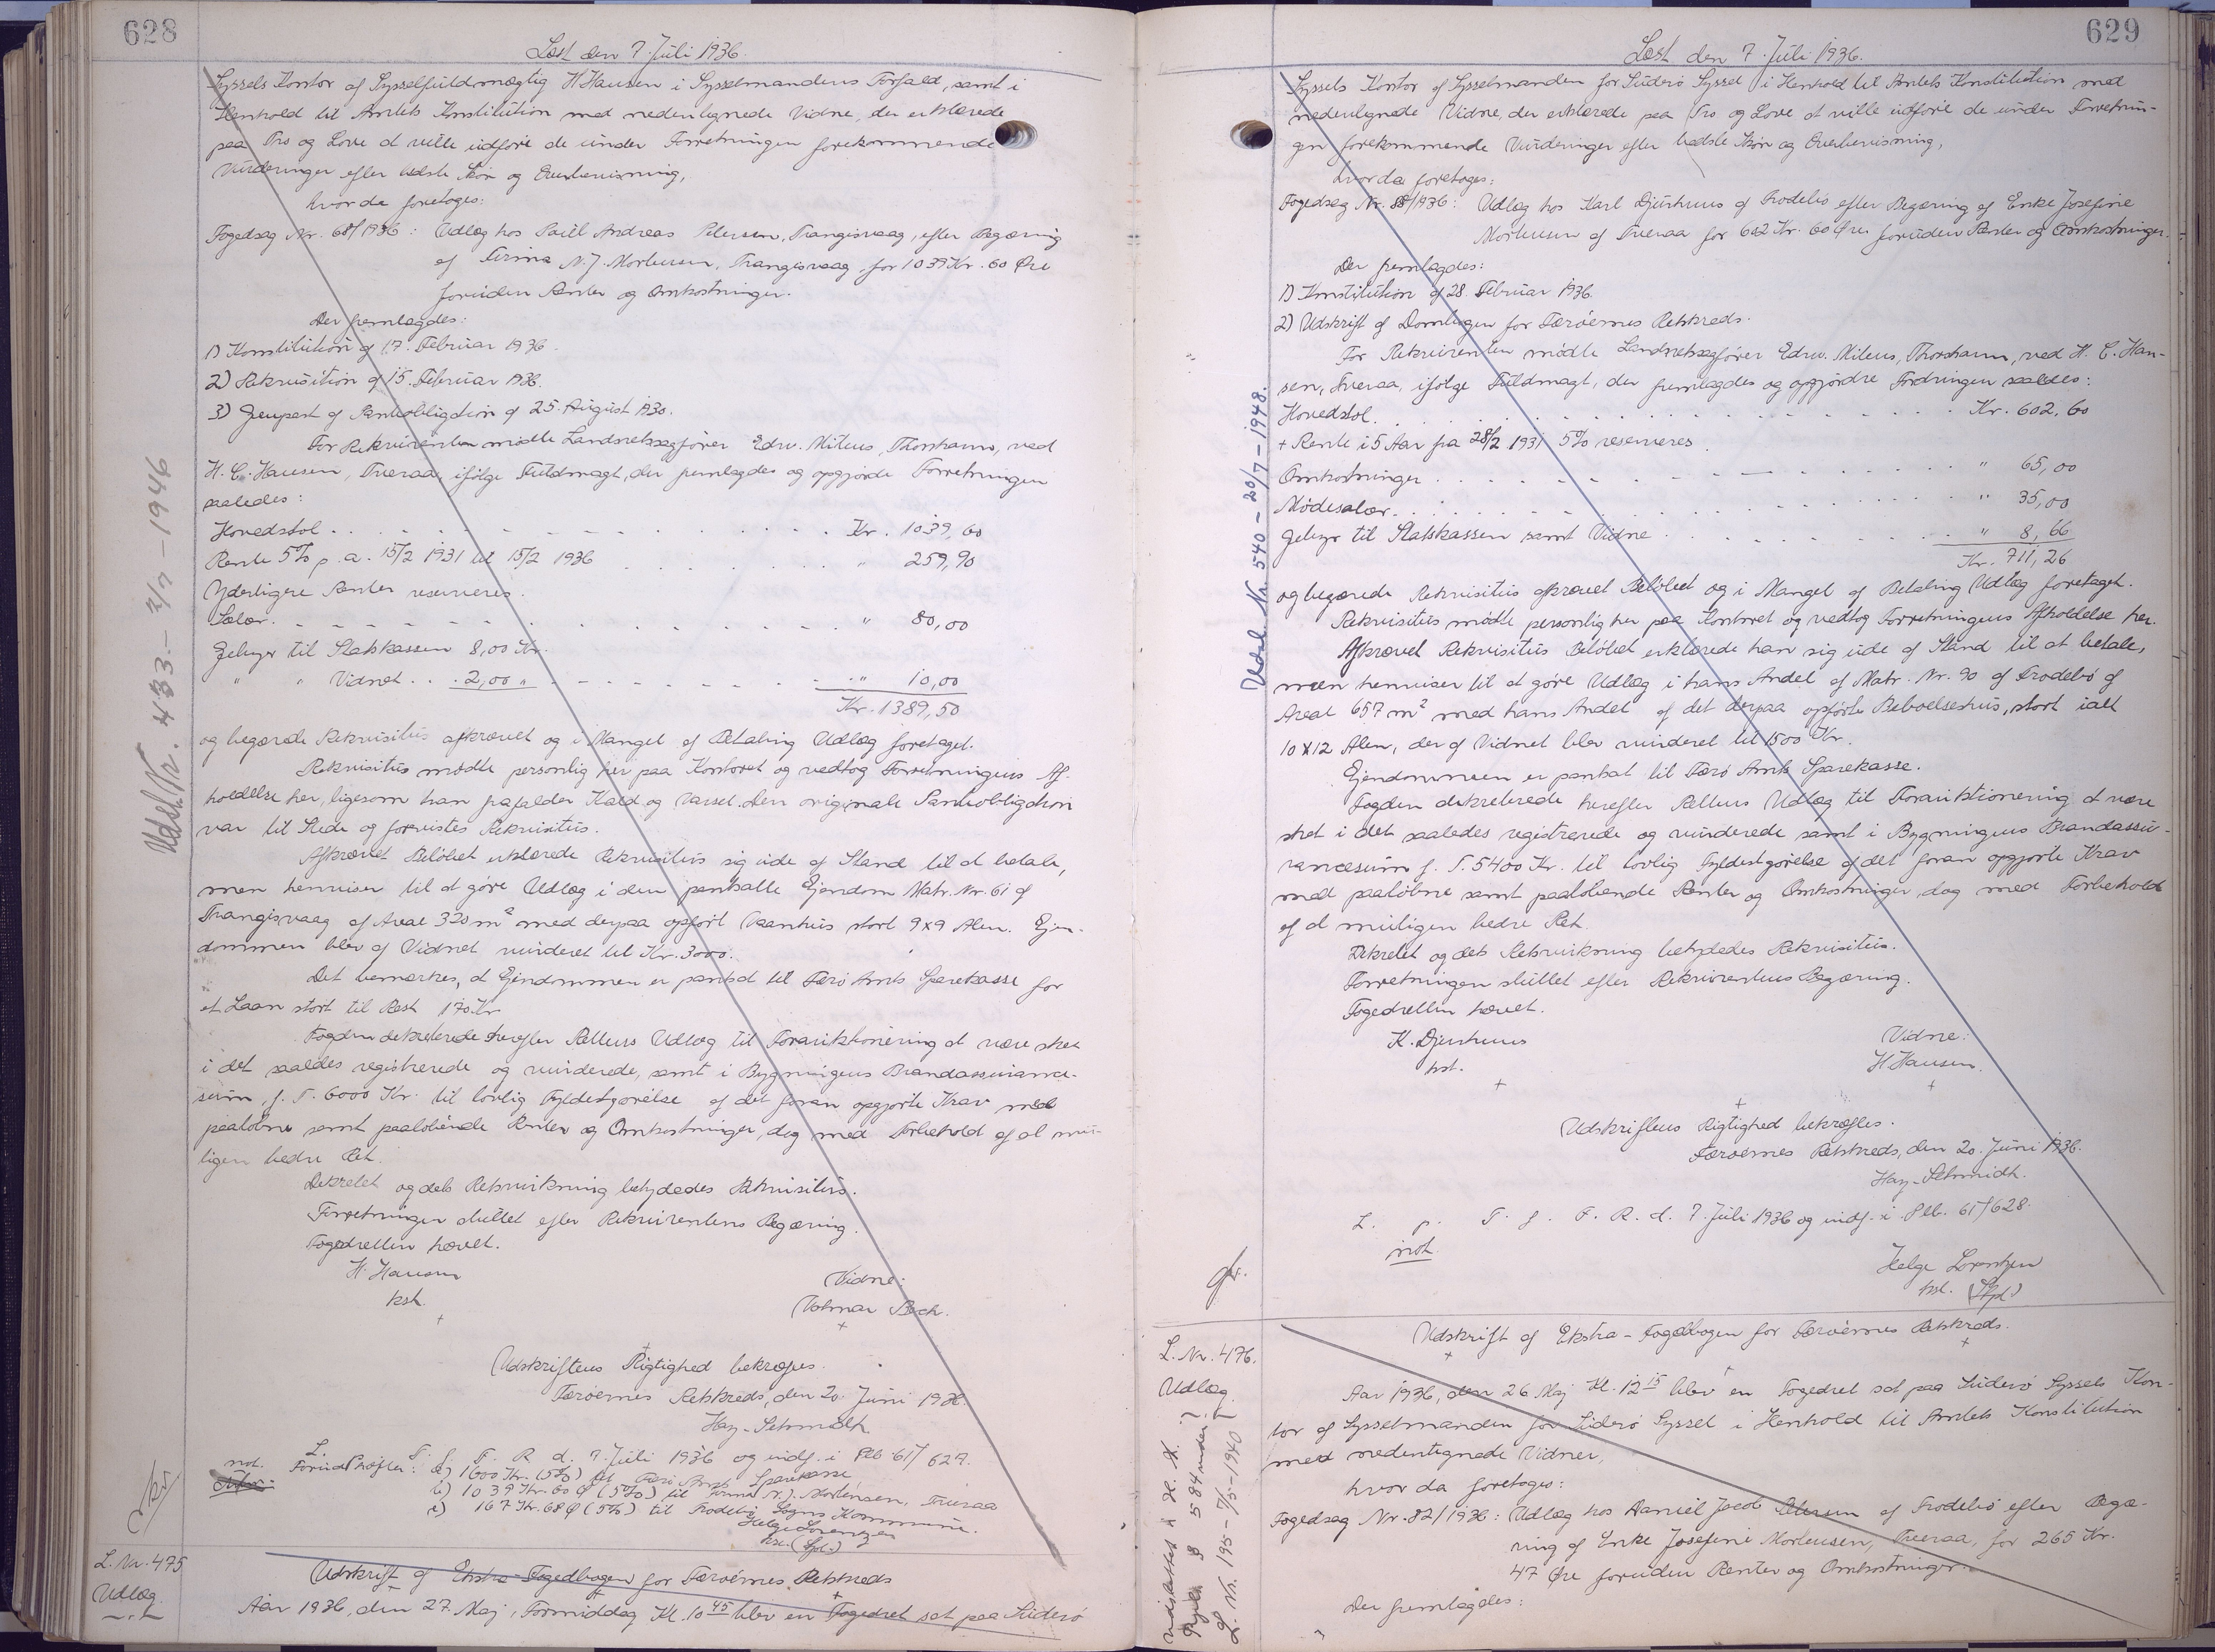 628
Læst den 7. Juli 1936.
Syssels Kontor af Sysselfuldmægtig H. Hansen i Sysselmandens Forfald, samt i
Henhold til Amtets Konstitution med nedentegnede Vidne, der erklærede
paa Tro og Love at ville udføre de under Forretningen forekommende
Vurderinger efter bedste Skøn og Overbevisning,
hvor da foretoges:
Fogedsag Nr. 68/1936: Udlæg hos Poul Andreas Petersen, Trangisvaag, efter Begæring
af Firma N. J. Mortensen, Trangisvaag, for 1039 Kr. 60 Øre
foruden Renter og Omkostninger.
Der fremlagdes:
1) Konstitution af 17. Februar 1936.
2) Rekvisition af 15. Februar 1936.
3) Genpart af Panteobligation af 25. August 1930.
For Rekvirenten mødte Landsretssagfører Edw. Mitens, Thorshavn, ved
H. C. Hansen, Tveraa, ifølge Fuldmagt, der fremlagdes og opgjorde Forretningen
saaledes:
Hovedstol . . . Kr. 1039,60
Rente 5% p. a. 15/2 1931 til 15/2 1936 . . . " 259,90
Yderligere Renter reserveres.
Salær . . . " 80,00
Gebyr til Statskassen 8,00 Kr.
" " Vidnet . . 2,00 " . . . " 10,00
Kr. 1389,50
og begærede Rekvisitus afkrævet og i Mangel af Betaling Udlæg foretaget.
Rekvisitus mødte personlig her paa Kontoret og vedtog Forretningens Af-
holdelse her, ligesom han frafalder Kald og Varsel. Den originale Panteobligation
var til Stede og forevistes Rekvisitus.
Afkrævet Beløbet erklærede Rekvisitus sig ude af Stand til at betale,
men henviser til at gøre Udlæg i den pantsatte Ejendom Matr. Nr. 61 af
Trangisvaag af Areal 320 m² med derpaa opført Vaanhus stort 9x9 Alen. Ejen-
dommen blev af Vidnet vurderet til Kr. 3000.
Det bemærkes, at Ejendommen er pantsat til Færø Amts Sparekasse for
et Laan stort til Rest 170 Kr.
Fogden dekreterede herefter Rettens Udlæg til Forauktionering at være sket
i det saaledes registrerede og vurderede, samt i Bygningens Brandassurance-
sum, f. T. 6000 Kr. til lovlig Fyldestgørelse af det foran opgjorte Krav med
paaløbne samt paaløbende Renter og Omkostninger, dog med Forbehold af al mu-
ligen bedre Ret.
Dekretet og dets Retsvirkning betydedes Rekvisitus.
Forretningen sluttet efter Rekvirentens Begæring.
Fogedretten hævet.
H. Hansen
kst.
Vidne:
Valmar Bech.
Udskriftens Rigtighed bekræftes.
Færøernes Retskreds, den 20. Juni 1936.
Hay-Schmidt
L. T. f. F. R. d. 7. Juli 1936 og indf. i Ptb. 61/627.
not.
Forud hæfter: a) 1600 Kr. (5%) til Færø Amts Sparekasse
b) 1039 Kr. 60 Ø (5%) til Firma N. J. Mortensen, Tveraa
c) 167 Kr. 68 Ø (5%) til Frodebø Sogns Kommune.
Helge Lorentzen
kst. (Spl.)
Udsl. Nr. 433 - 2/7 - 1946
L. Nr. 475
Udlæg
Udskrift af Ekstra-Fogedbogen for Færøernes Retskreds
Aar 1936, den 27. Maj, Formiddag Kl. 10 45 blev en Fogedret sat paa Suderø
629
Læst den 7. Juli 1936.
Syssels Kontor af Sysselmanden for Suderø Syssel i Henhold til Amtets Konstitution med
nedentegnede Vidne, der erklærede paa Tro og Love at ville udføre de under Forretnin-
gen forekommende Vurderinger efter bedste Skøn og Overbevisning,
hvor da foretoges:
Fogedsag Nr. 88/1936: Udlæg hos Karl Djurhuus af Frodebø efter Begæring af Enke Josefine
Mortensen af Tveraa for 602 Kr. 60 Øre foruden Renter og Omkostninger.
Der fremlagdes:
1) Konstitution af 28. Februar 1936.
2) Udskrift af Dombogen for Færøernes Retskreds.
For Rekvirenten mødte Landsretssagfører Edw. Mitens, Thorshavn, ved H. C. Han-
sen, Tveraa, ifølge Fuldmagt, der fremlagdes og opgjorde Fordringen saaledes:
Hovedstol . . . Kr. 602,60
+ Rente i 5 Aar fra 28/2 1931 5% reserveres.
Omkostninger . . . " 65,00
Mødesalær . . . " 35,00
Gebyr til Statskassen samt Vidne . . . " 8,66
Kr. 711,26
og begærede Rekvisitus afkrævet Beløbet og i Mangel af Betaling Udlæg foretaget.
Rekvisitus mødte personlig her paa Kontoret og vedtog Forretningens Afholdelse her.
Afkrævet Rekvisitus Beløbet erklærede han sig ude af Stand til at betale,
men henviser til at gøre Udlæg i hans Andel af Matr. Nr. 90 af Frodebø af
Areal 657 m² med hans Andel af det derpaa opførte Beboelseshus, stort ialt
10 x 12 Alen, der af Vidnet blev vurderet til 1500 Kr.
Ejendommen er pantsat til Færø Amts Sparekasse.
Fogden dekreterede herefter Rettens Udlæg til Forauktionering at være
sket i det saaledes registrerede og vurderede samt i Bygningens Brandassu-
rancesum f. T. 5400 Kr. til lovlig Fyldestgørelse af det foran opgjorte Krav
med paaløbne samt paaløbende Renter og Omkostninger, dog med Forbehold
af al muligen bedre Ret.
Dekretet og dets Retsvirkning betydedes Rekvisitus.
Forretningen sluttet efter Rekvirentens Begæring.
Fogedretten hævet.
K. Djurhuus
kst.
Vidne:
H Hansen.
Udskriftens Rigtighed bekræftes.
Færøernes Retskreds, den 20. Juni 1936.
Hay-Schmidt.
L. p. T. f. F. R. d. 7. Juli 1936 og indf. i Ptb. 61/628.
not.
Helge Lorentzen
kst. (Spl.)
Udsl. Nr. 540 - 20/7 - 1948.
L. Nr. 476.
Udlæg
L. Nr. 195 - 7/5 - 1940
Udskrift af Ekstra-Fogedbogen for Færøernes Retskreds.
Aar 1936, den 26 Maj Kl. 12 15 blev en Fogedret sat paa Suderø Syssels Kon-
tor af Sysselmanden for Suderø Syssel i Henhold til Amtets Konstitution
med nedentegnede Vidner,
hvor da foretoges:
Fogedsag Nr. 82/1936: Udlæg hos Daniel Jacob Petersen af Frodebø efter Begæ-
ring af Enke Josefine Mortensen, Tveraa, for 265 Kr.
47 Øre foruden Renter og Omkostninger.
Der fremlagdes: